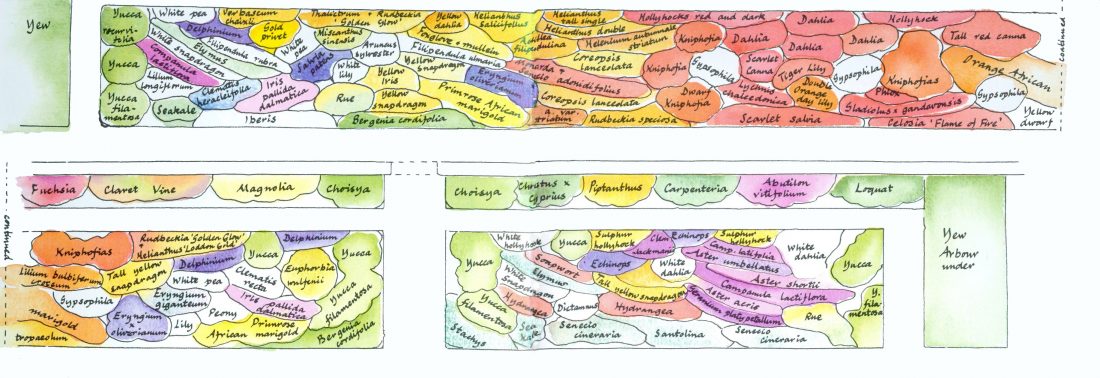 Yew
Yucca
recurvi-
folia
Yucca
Yucca
fila-
mentosa
White pea
Verbascum
chaixii
Delphinium
Gold
privet
White snapdragon
Elymus
Filipendula rubra
Campanula
lactiflora
Lilium
longiflorum
Clematis
heracleifolia
Seakale
Iberis
Iris
pallida
dalmatica
White
pea
Salvia
Thalictrum
'Golden Glow'
Rudbeckia
Miscanthus
sinensis
Aruncus
sylvester
White
lily
Rue
Yellow
dahlia
Helianthus
salicifolius
Foxglove + mullein
Filipendula ulmaria
Yellow
snapdragon
Yellow
Iris
Yellow
snapdragon
Eryngium
oliverianum
Primrose African
marigold
Bergenia cordifolia
Helianthus
tall single
Helianthus double
Helenium autumnale
striatum
Coreopsis
lanceolata
Senecio adonidifolius
Coreopsis lanceolata
a. var.
striatum
Rudbeckia speciosa
Hollyhocks red and dark
Kniphofia
Kniphofia
Dwarf
Kniphofia
Dahlia
Dahlia
Dahlia
Gypsophila
Scarlet
Canna
Lychnis
chalcedonica
Tiger Lily
Double
Orange
day lily
Scarlet salvia
Dahlia
Hollyhock
Gypsophila
Kniphofias
Phlox
Gladiolus x gandavensis
Celosia 'Flame of Fire'
Tall red canna
Orange African
Gypsophila
Yellow
dwarf
continued
Fuchsia
Claret Vine
Magnolia
Choisya
Choisya
Cistus x
cyprius
Piptanthus
Carpenteria
Abutilon
vitifolium
Loquat
Yew
Arbour
under
continued
Kniphofias
Rudbeckia 'Golden Glow'
Helianthus 'Loddon Gold'
Delphinium
Yucca
Yucca
Lilium bulbiferum
croceum
Tall yellow
snapdragon
Delphinium
White pea
Clematis
recta
Euphorbia
wulfenii
Gypsophila
Eryngium
giganteum
Iris pallida
dalmatica
Yucca
filamentosa
marigold
tropaeolum
Eryngium
x
oliverianum
Lily
Peony
African
Primrose
marigold
Bergenia
cordifolia
Yucca
White
hollyhock
Yucca
Sulphur
hollyhock
Clem.
jackmanii
Echinops
Sulphur
hollyhock
Camp. latifolia
White
dahlia
Yucca
White
snapdragon
Soapwort
Elymus
Echinops
White
dahlia
Aster umbellatus
Aster shortii
Tall yellow snapdragon
Campanula lactiflora
Yucca
filamentosa
Hydrangea
Dictamnus
Hydrangea
Aster acris
Geranium platypetallum
Rue
Y.
fila-
mentosa
Stachys
Sea
kale
Senecio
cineraria
Santolina
Senecio
cineraria